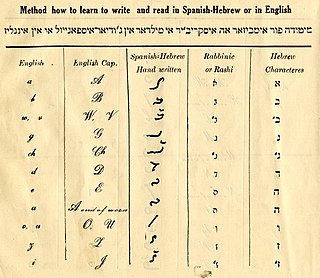 Method how to learn to write and read in Spanish-Hebrew or in English
מיטודה פור אימביזאר אה איסקריב׳יר אי מילדאר אין ג׳ודיאו־איספאנייול אי אין אינגליז
English English Cap. Spanish-Hebrew Hand written Rabbinic or Rashi Hebrew Characteres
a A א
b B ב
w, v W. V ב׳
g G ג
ch Ch ג׳
d D ד
e E ה
a A end of word ה
o. u O. U ו
z Z ז
i J ז׳